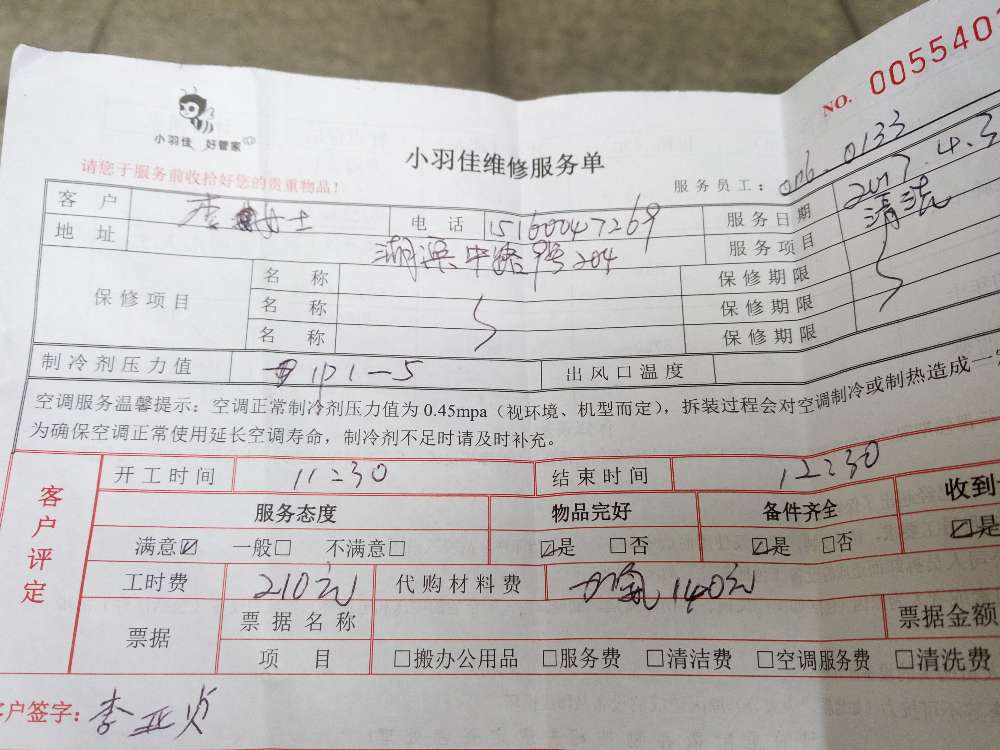 小羽佳 好管家
NO. 005540
请您于服务前收拾好您的贵重物品!
小羽佳维修服务单
服务员工: 0133
客户 李 女士 电话 15160047269 服务日期 2017.4.3
地址 湖滨中路 204 服务项目 清洗
保修项目 名称 保修期限
名称 保修期限
名称 保修期限
制冷剂压力值 出风口温度
空调服务温馨提示:空调正常制冷剂压力值为0.45mpa(视环境、机型而定),拆装过程会对空调制冷或制热造成一定
为确保空调正常使用延长空调寿命,制冷剂不足时请及时补充。
客户评定
开工时间 11:30 结束时间 12:30
服务态度 物品完好 备件齐全 收到
满意☑ 一般□ 不满意□ ☑是 □否 ☑是 □否 ☑是
工时费 210元 代购材料费 加氟140元
票据 票据名称 票据金额
项目 □搬办公用品 □服务费 □清洁费 □空调服务费 □清洗费
客户签字: 李亚贞